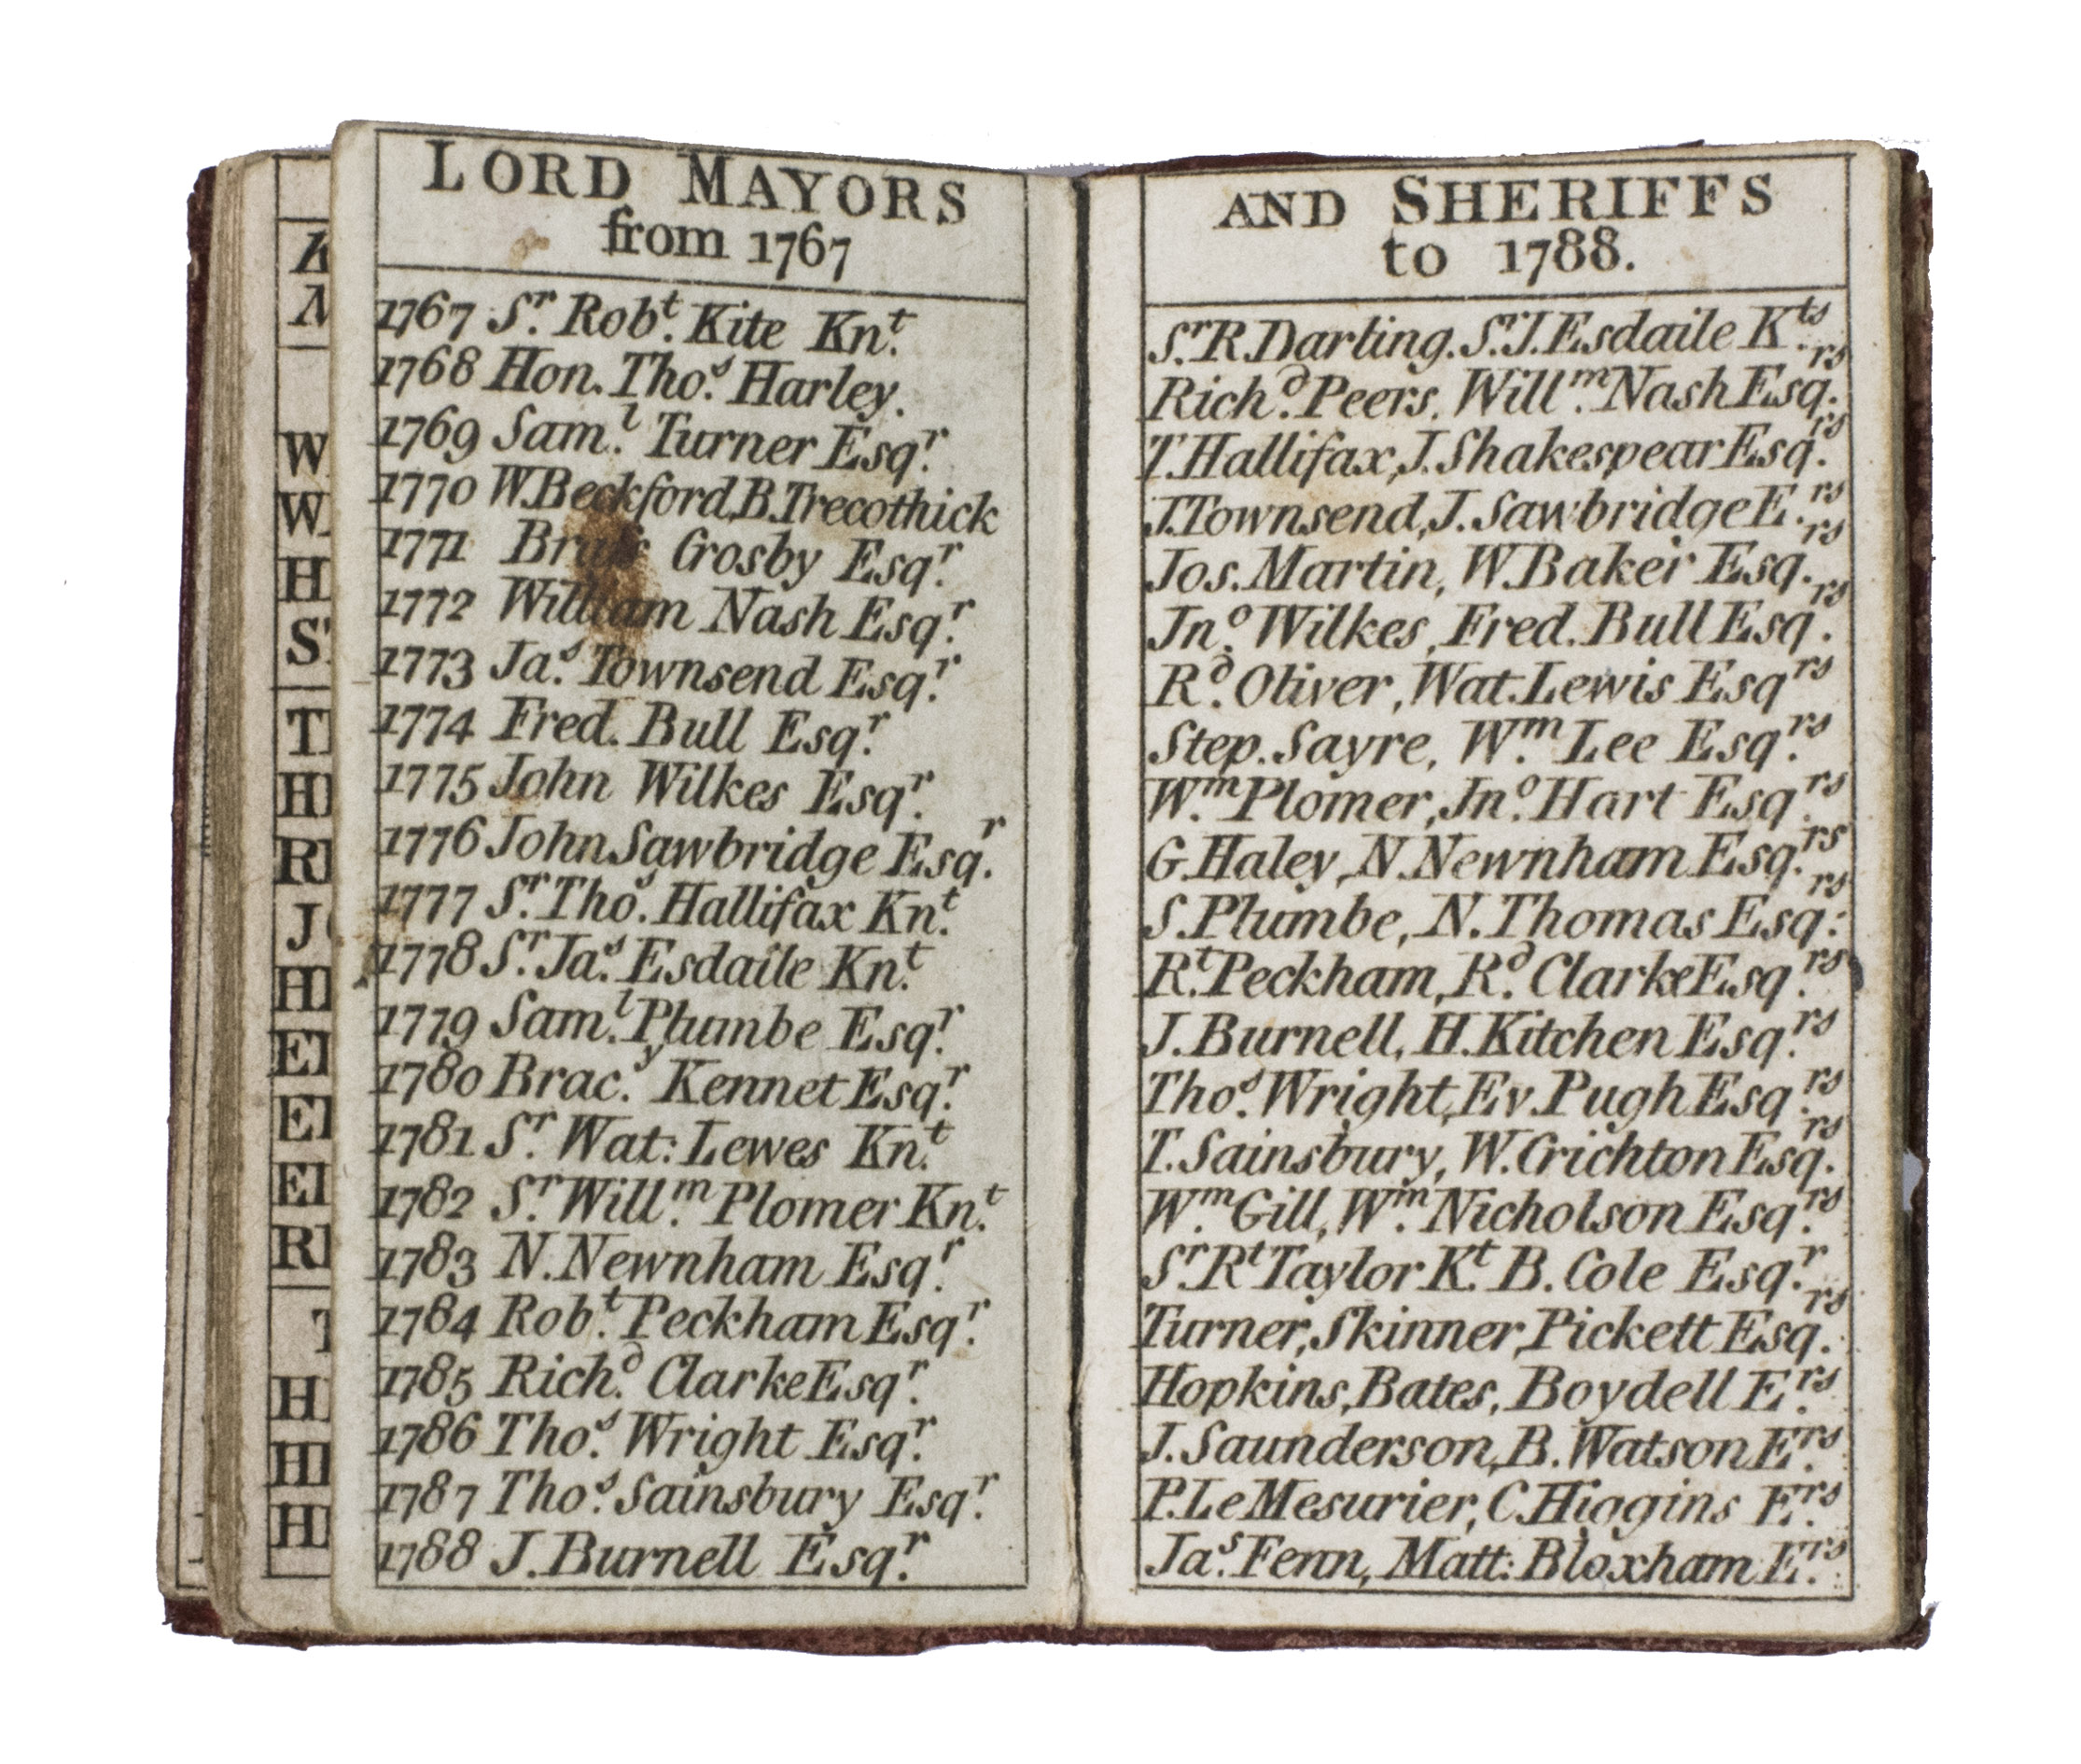 LORD MAYORS
from 1767
1767 Sr. Robt. Kite Knt.
1768 Hon. Thos. Harley.
1769 Saml. Turner Esqr.
1770 W.Beckford,B.Trecothick
1771 Crosby Esqr.
1772 William Nash Esqr.
1773 Jas. Townsend Esqr.
1774 Fred. Bull Esqr.
1775 John Wilkes Esqr.
1776 John Sawbridge Esqr.
1777 Sr. Thos. Hallifax Knt.
1778 Sr. Jas. Esdaile Knt.
1779 Saml. Plumbe Esqr.
1780 Bracy. Kennet Esqr.
1781 Sr. Wat: Lewes Knt.
1782 Sr. Willm. Plomer Knt.
1783 N. Newnham Esqr.
1784 Robt. Peckham Esqr.
1785 Richd. Clarke Esqr.
1786 Thos. Wright Esqr.
1787 Thos. Sainsbury Esqr.
1788 J. Burnell Esqr.
AND SHERIFFS
to 1788.
Sr. R. Darling. Sr. J. Esdaile Kts.
Richd. Peers, Willm. Nash Esqrs.
T. Hallifax, J. Shakespear Esqrs.
J. Townsend, J. Sawbridge Ers.
Jos. Martin, W. Baker Esqrs.
Jno. Wilkes, Fred. Bull Esqrs.
Rd. Oliver, Wat. Lewis Esqrs
Step. Sayre, Wm. Lee Esqrs.
Wm. Plomer, Jno. Hart Esqrs.
G. Haley, N. Newnham Esqrs.
S. Plumbe, N. Thomas Esqrs:
Rt. Peckham, Rd. Clarke Esqrs.
J. Burnell, H. Kitchen Esqrs.
Thos. Wright, Ev. Pugh Esqrs.
T. Sainsbury, W. Crichton Esqrs.
Wm. Gill, Wm. Nicholson Esqrs.
Sr. Rt Taylor Kt. B. Cole Esqr.
Turner, Skinner, Pickett Esqrs.
Hopkins, Bates, Boydell Ers.
J. Saunderson, B. Watson Ers.
P. Le Mesurier, C. Higgins Ers.
Jas. Fenn, Matt: Bloxham Ers.